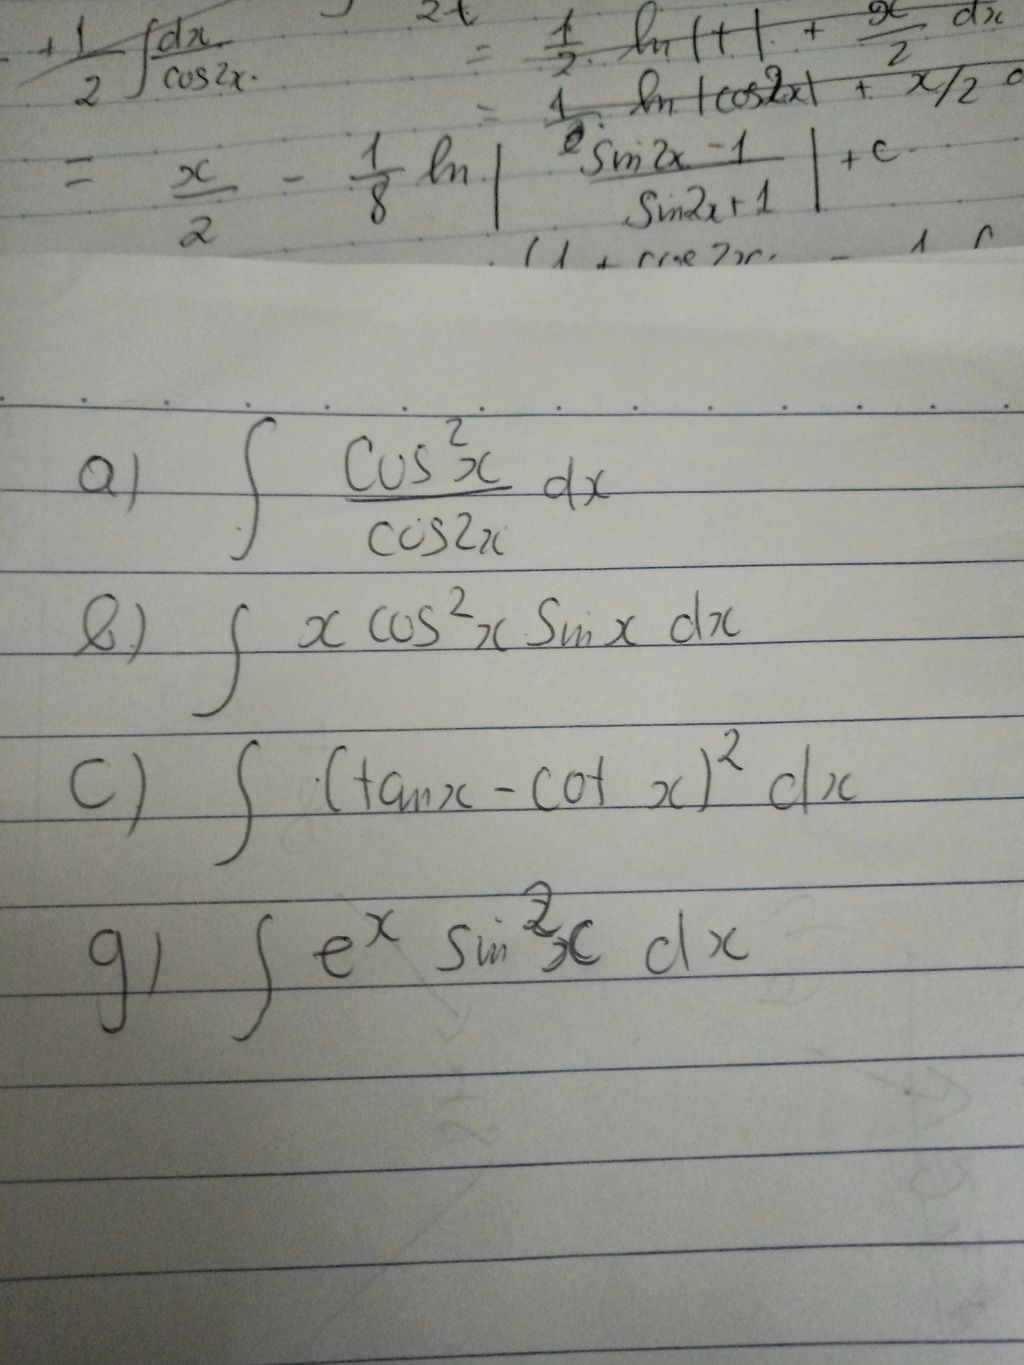 + 1/2 ∫ dx/cos2x. 2t = 1/2 ln |t| + x/2 dx
= 1/2 ln |cos2x| + x/2
= x/2 - 1/8 ln | sin2x - 1 / sin2x + 1 | + c
(1 + cos2x. - 1
a) ∫ cos²x/cos2x dx
b) ∫ x cos²x sin x dx
c) ∫ (tanx - cot x)² dx
g) ∫ eˣ sin²x dx